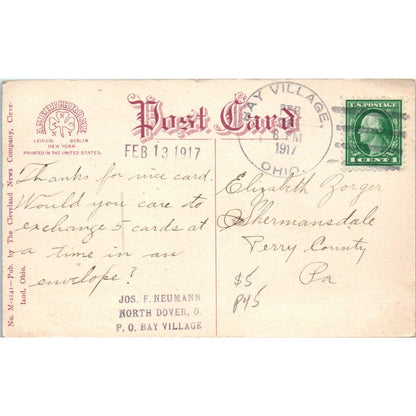 Post Card
LEIPZIG BERLIN
NEW YORK
PRINTED IN THE UNITED STATES.
No. M-2141—Pub. by The Cleveland News Company, Cleve-
land, Ohio.
FEB 13 1917
Thanks for nice card.
Would you care to
exchange 5 cards at
a time in an
envelope?
JOS. F. NEUMANN
NORTH DOVER, O.
P. O. BAY VILLAGE
BAY VILLAGE,
FEB
M
1917
OHIO.
U.S. POSTAGE
1 CENT 1
Elizabeth Zorger
Shermansdale
Perry County
Pa
$5